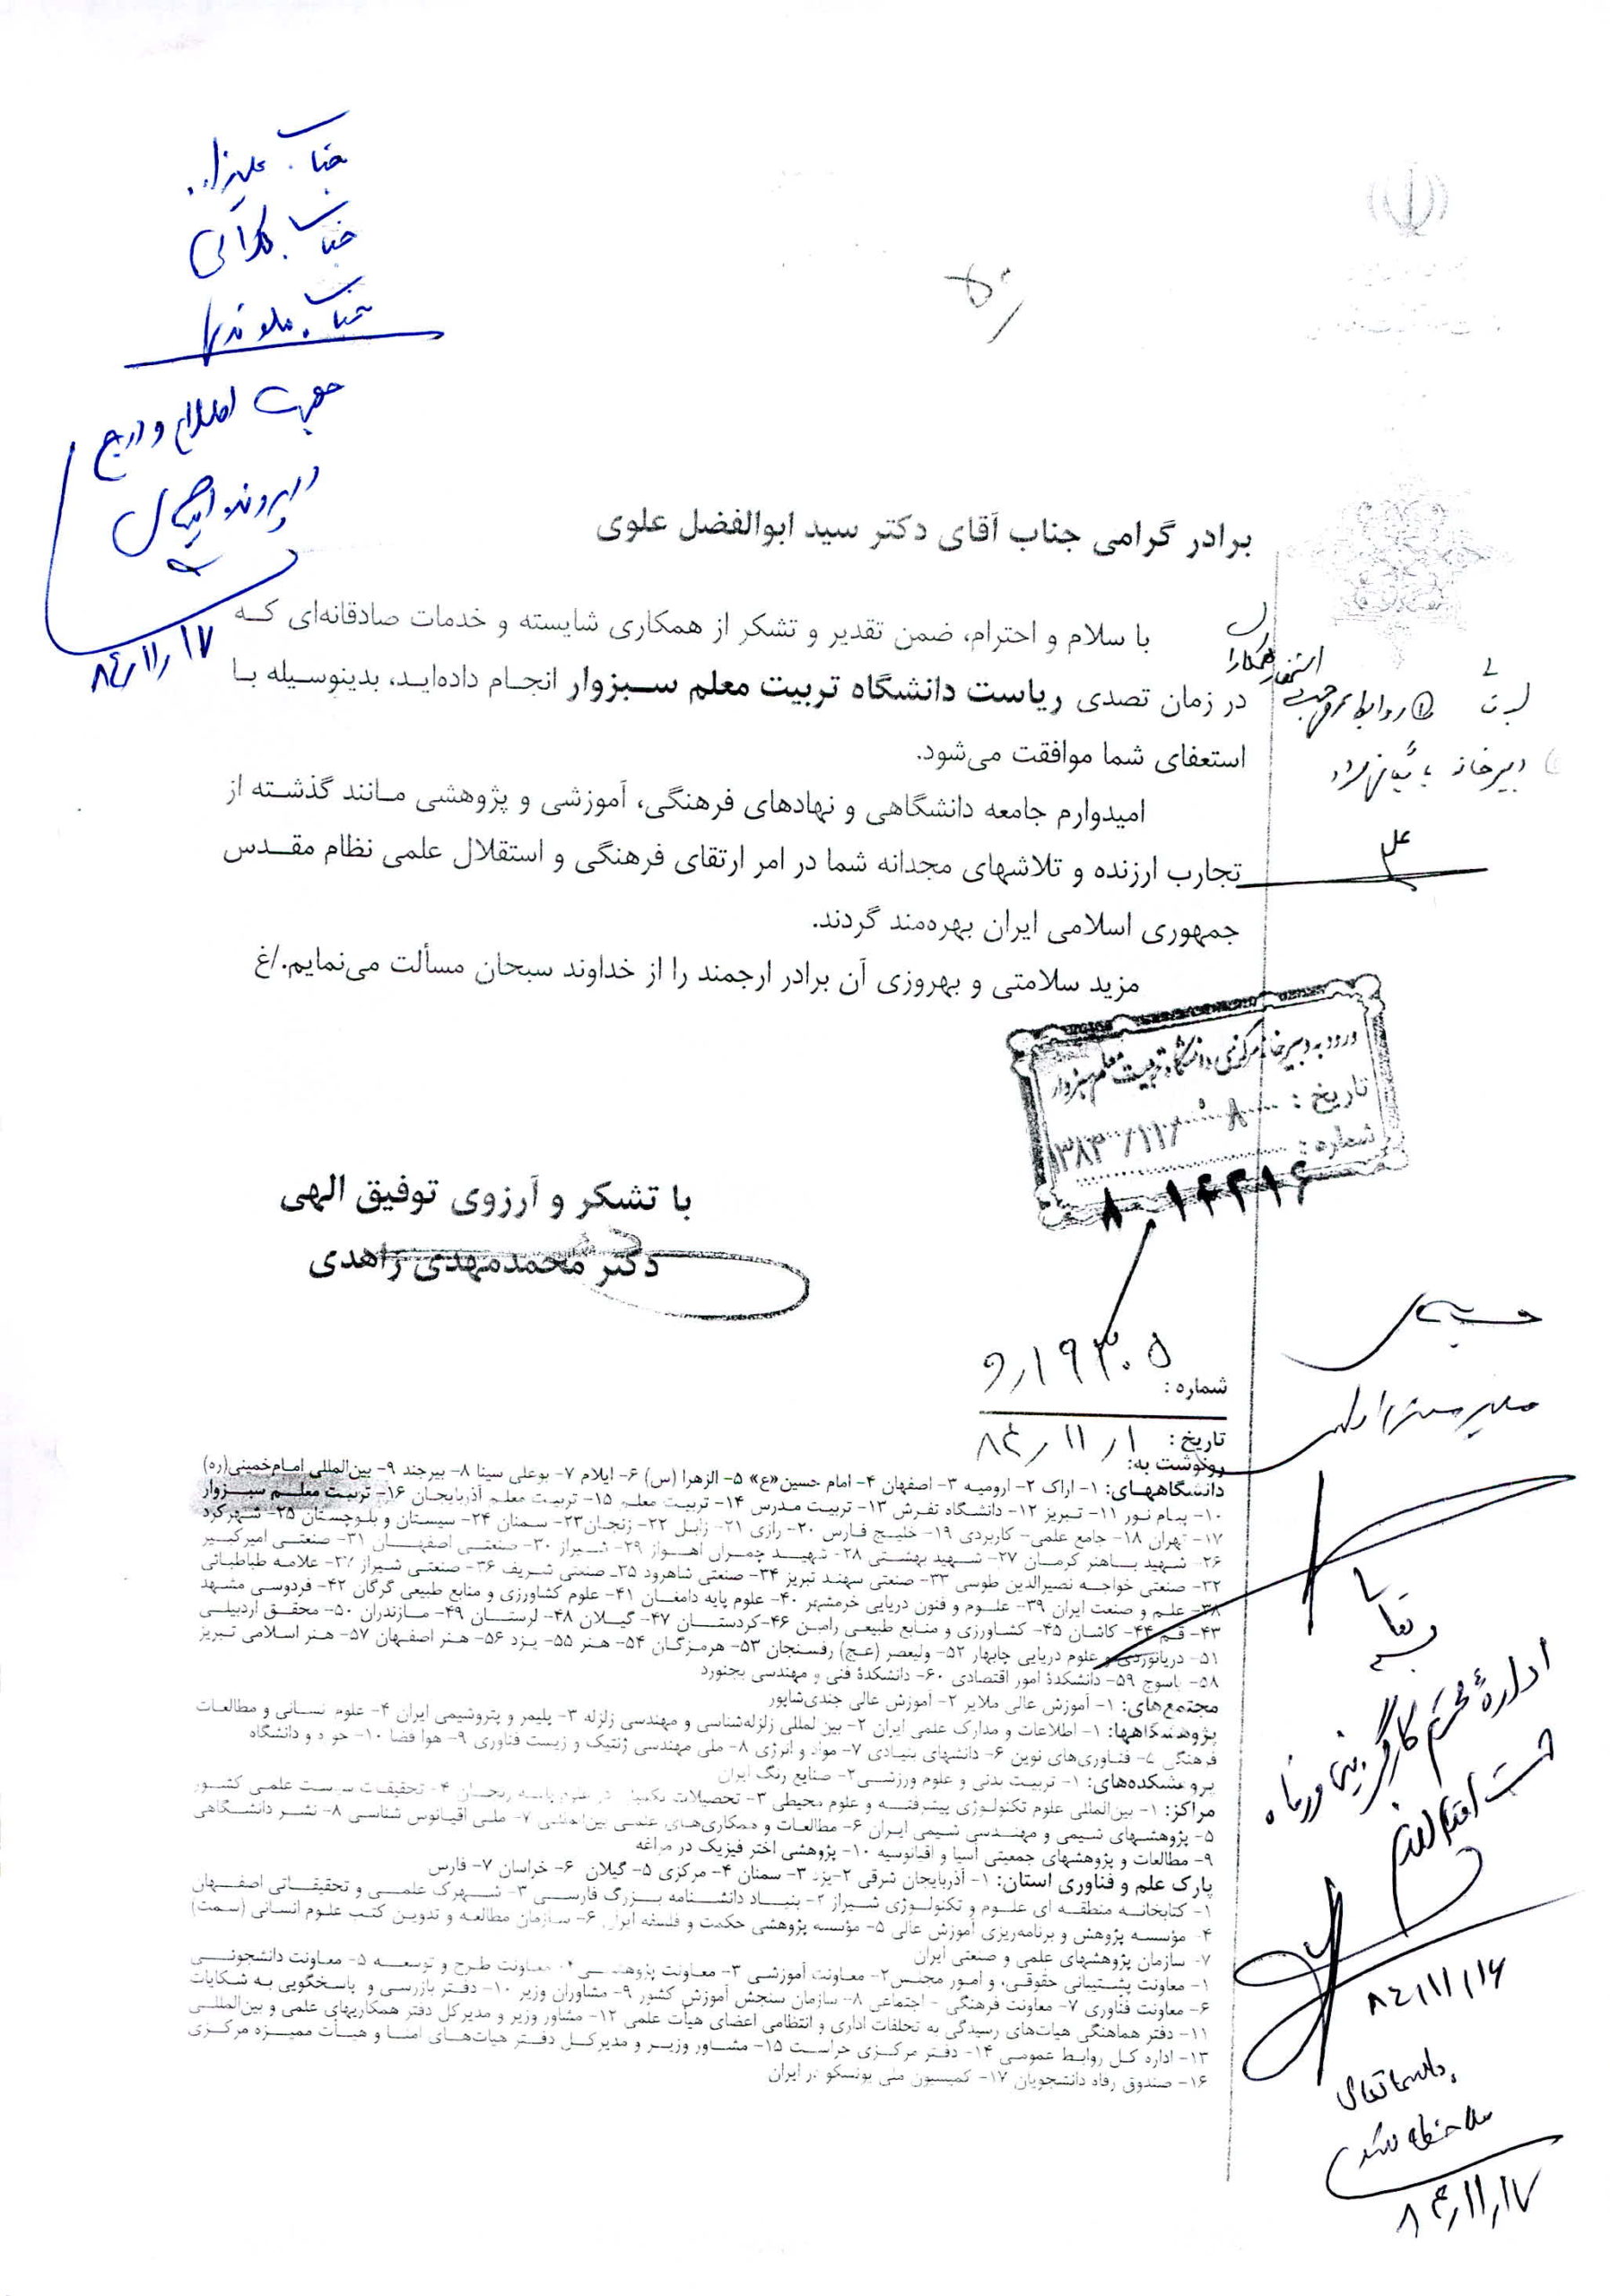 برادر گرامی جناب آقای دکتر سید ابوالفضل علوی
با سلام و احترام، ضمن تقدیر و تشکر از همکاری شایسته و خدمات صادقانه‌ای که
در زمان تصدی ریاست دانشگاه تربیت معلم سبزوار انجام داده‌اید، بدینوسیله با
استعفای شما موافقت می‌شود.
امیدوارم جامعه دانشگاهی و نهادهای فرهنگی، آموزشی و پژوهشی مانند گذشته از
تجارب ارزنده و تلاشهای مجدانه شما در امر ارتقای فرهنگی و استقلال علمی نظام مقدس
جمهوری اسلامی ایران بهره‌مند گردند.
مزید سلامتی و بهروزی آن برادر ارجمند را از خداوند سبحان مسألت می‌نمایم./غ
ورود به دبیرخانه مرکزی دانشگاه تربیت معلم سبزوار
تاریخ :
شماره :
با تشکر و آرزوی توفیق الهی
دکتر محمدمهدی زاهدی
شماره : ۱۹۳۰۵/و
تاریخ : ۸۴/۱۱/۱
رونوشت به:
دانشگاههای: ۱- اراک ۲- ارومیه ۳- اصفهان ۴- امام حسین«ع» ۵- الزهرا (س) ۶- ایلام ۷- بوعلی سینا ۸- بیرجند ۹- بین‌المللی امام‌خمینی(ره)
۱۰- پیام نور ۱۱- تبریز ۱۲- دانشگاه تفرش ۱۳- تربیت مدرس ۱۴- تربیت معلم ۱۵- تربیت معلم آذربایجان ۱۶- تربیت معلم سبزوار
۱۷- تهران ۱۸- جامع علمی- کاربردی ۱۹- خلیج فارس ۲۰- رازی ۲۱- زابل ۲۲- زنجان ۲۳- سمنان ۲۴- سیستان و بلوچستان ۲۵- شهرکرد
۲۶- شهید باهنر کرمان ۲۷- شهید بهشتی ۲۸- شهید چمران اهواز ۲۹- شیراز ۳۰- صنعتی اصفهان ۳۱- صنعتی امیرکبیر
۳۲- صنعتی خواجه نصیرالدین طوسی ۳۳- صنعتی سهند تبریز ۳۴- صنعتی شاهرود ۳۵- صنعتی شریف ۳۶- صنعتی شیراز ۳۷- علامه طباطبائی
۳۸- علم و صنعت ایران ۳۹- علوم و فنون دریایی خرمشهر ۴۰- علوم پایه دامغان ۴۱- علوم کشاورزی و منابع طبیعی گرگان ۴۲- فردوسی مشهد
۴۳- قم ۴۴- کاشان ۴۵- کشاورزی و منابع طبیعی رامین ۴۶- کردستان ۴۷- گیلان ۴۸- لرستان ۴۹- مازندران ۵۰- محقق اردبیلی
۵۱- دریانوردی و علوم دریایی چابهار ۵۲- ولیعصر (عج) رفسنجان ۵۳- هرمزگان ۵۴- هنر ۵۵- یزد ۵۶- هنر اصفهان ۵۷- هنر اسلامی تبریز
۵۸- یاسوج ۵۹- دانشکدهٔ امور اقتصادی ۶۰- دانشکدهٔ فنی و مهندسی بجنورد
مجتمع‌های: ۱- آموزش عالی ملایر ۲- آموزش عالی جندی‌شاپور
پژوهشگاهها: ۱- اطلاعات و مدارک علمی ایران ۲- بین المللی زلزله‌شناسی و مهندسی زلزله ۳- پلیمر و پتروشیمی ایران ۴- علوم انسانی و مطالعات
فرهنگی ۵- فناوری‌های نوین ۶- دانشهای بنیادی ۷- مواد و انرژی ۸- ملی مهندسی ژنتیک و زیست فناوری ۹- هوا فضا ۱۰- حوزه و دانشگاه
پژوهشکده‌های: ۱- تربیت بدنی و علوم ورزشی ۲- صنایع رنگ ایران
مراکز: ۱- بین‌المللی علوم تکنولوژی پیشرفته و علوم محیطی ۳- تحصیلات تکمیلی در علوم پایه زنجان ۴- تحقیقات سیاست علمی کشور
۵- پژوهشهای شیمی و مهندسی شیمی ایران ۶- مطالعات و همکاری‌های علمی بین‌المللی ۷- ملی اقیانوس شناسی ۸- نشر دانشگاهی
۹- مطالعات و پژوهشهای جمعیتی آسیا و اقیانوسیه ۱۰- پژوهشی اختر فیزیک در مراغه
پارک علم و فناوری استان: ۱- آذربایجان شرقی ۲- یزد ۳- سمنان ۴- مرکزی ۵- گیلان ۶- خراسان ۷- فارس
۱- کتابخانه منطقه ای علوم و تکنولوژی شیراز ۲- بنیاد دانشنامه بزرگ فارسی ۳- شهرک علمی و تحقیقاتی اصفهان
۴- مؤسسه پژوهش و برنامه‌ریزی آموزش عالی ۵- مؤسسه پژوهشی حکمت و فلسفه ایران ۶- سازمان مطالعه و تدوین کتب علوم انسانی (سمت)
۷- سازمان پژوهشهای علمی و صنعتی ایران
۱- معاونت پشتیبانی حقوقی، و امور مجلس ۲- معاونت آموزشی ۳- معاونت پژوهشی ۴- معاونت طرح و توسعه ۵- معاونت دانشجویی
۶- معاونت فناوری ۷- معاونت فرهنگی - اجتماعی ۸- سازمان سنجش آموزش کشور ۹- مشاوران وزیر ۱۰- دفتر بازرسی و پاسخگویی به شکایات
۱۱- دفتر هماهنگی هیات‌های رسیدگی به تخلفات اداری و انتظامی اعضای هیات علمی ۱۲- مشاور وزیر و مدیرکل دفتر همکاریهای علمی و بین‌المللی
۱۳- اداره کل روابط عمومی ۱۴- دفتر مرکزی حراست ۱۵- مشاور وزیر و مدیرکل دفتر هیات‌های امنا و هیات ممیزه مرکزی
۱۶- صندوق رفاه دانشجویان ۱۷- کمیسیون ملی یونسکو در ایران
جهت اطلاع و درج
در پرونده
۸۴/۱۱/۱۷
۸۴/۱۱/۱۶
ملاحظه شد
۸۴/۱۱/۱۷